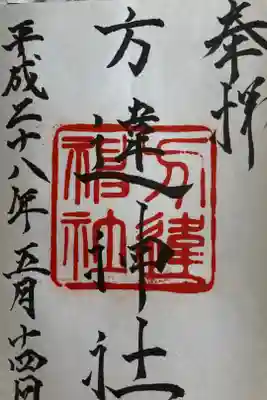 奉拝
方違神社
方違神社
平成二十八年五月十四日